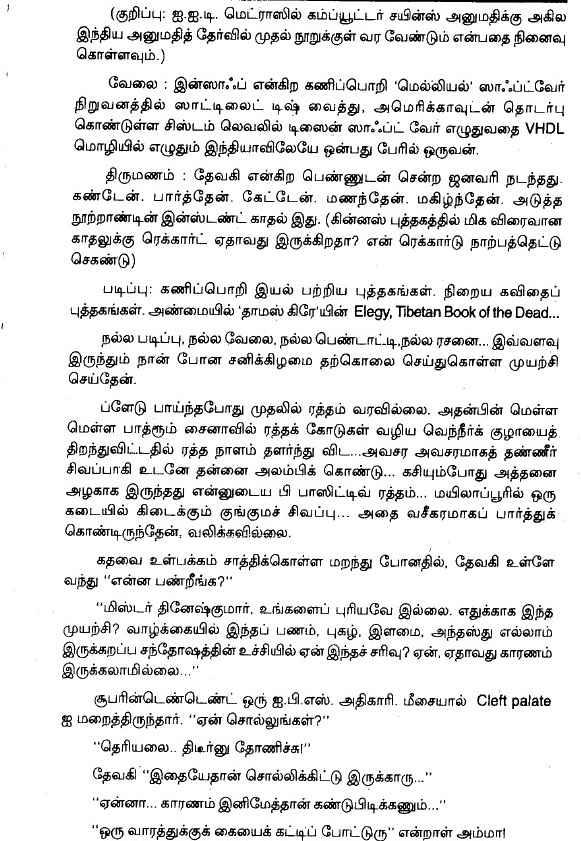 (குறிப்பு: ஐ.ஐ.டி. மெட்ராஸில் கம்ப்யூட்டர் சயின்ஸ் அனுமதிக்கு அகில
இந்திய அனுமதித் தேர்வில் முதல் நூறுக்குள் வர வேண்டும் என்பதை நினைவு
கொள்ளவும்.)
வேலை : இன்ஸாஃப் என்கிற கணிப்பொறி ‘மெல்லியல்’ ஸாஃப்ட்வேர்
நிறுவனத்தில் ஸாட்டிலைட் டிஷ் வைத்து, அமெரிக்காவுடன் தொடர்பு
கொண்டுள்ள சிஸ்டம் லெவலில் டிஸைன் ஸாஃப்ட் வேர் எழுதுவதை VHDL
மொழியில் எழுதும் இந்தியாவிலேயே ஒன்பது பேரில் ஒருவன்.
திருமணம் : தேவகி என்கிற பெண்ணுடன் சென்ற ஜனவரி நடந்தது.
கண்டேன். பார்த்தேன். கேட்டேன். மணந்தேன். மகிழ்ந்தேன். அடுத்த
நூற்றாண்டின் இன்ஸ்டண்ட் காதல் இது. (கின்னஸ் புத்தகத்தில் மிக விரைவான
காதலுக்கு ரெக்கார்ட் ஏதாவது இருக்கிறதா? என் ரெக்கார்டு நாற்பத்தெட்டு
செகண்டு)
படிப்பு: கணிப்பொறி இயல் பற்றிய புத்தகங்கள். நிறைய கவிதைப்
புத்தகங்கள். அண்மையில் ‘தாமஸ் கிரே’யின் Elegy, Tibetan Book of the Dead...
நல்ல படிப்பு, நல்ல வேலை, நல்ல பெண்டாட்டி,நல்ல ரசனை... இவ்வளவு
இருந்தும் நான் போன சனிக்கிழமை தற்கொலை செய்துகொள்ள முயற்சி
செய்தேன்.
ப்ளேடு பாய்ந்தபோது முதலில் ரத்தம் வரவில்லை. அதன்பின் மெள்ள
மெள்ள பாத்ரூம் சைனாவில் ரத்தக் கோடுகள் வழிய வெந்நீர்க் குழாயைத்
திறந்துவிட்டதில் ரத்த நாளம் தளர்ந்து விட...அவசர அவசரமாகத் தண்ணீர்
சிவப்பாகி உடனே தன்னை அலம்பிக் கொண்டு... கசியும்போது அத்தனை
அழகாக இருந்தது என்னுடைய பி பாஸிட்டிவ் ரத்தம்... மயிலாப்பூரில் ஒரு
கடையில் கிடைக்கும் குங்குமச் சிவப்பு... அதை வசீகரமாகப் பார்த்துக்
கொண்டிருந்தேன், வலிக்கவில்லை.
கதவை உள்பக்கம் சாத்திக்கொள்ள மறந்து போனதில், தேவகி உள்ளே
வந்து ‘‘என்ன பண்றீங்க?’’
‘‘மிஸ்டர் தினேஷ்குமார், உங்களைப் புரியவே இல்லை. எதுக்காக இந்த
முயற்சி? வாழ்க்கையில் இந்தப் பணம், புகழ், இளமை, அந்தஸ்து எல்லாம்
இருக்கறப்ப சந்தோஷத்தின் உச்சியில் ஏன் இந்தச் சரிவு? ஏன், ஏதாவது காரணம்
இருக்கலாமில்லை...’’
சூபரின்டெண்டெண்ட் ஒரு ஐ.பி.எஸ். அதிகாரி. மீசையால் Cleft palate
ஐ மறைத்திருந்தார். ‘‘ஏன் சொல்லுங்கள்?’’
‘‘தெரியலை.. திடீர்னு தோணிச்சு!’’
தேவகி ‘‘இதையேதான் சொல்லிக்கிட்டு இருக்காரு...’’
‘‘ஏன்னா... காரணம் இனிமேத்தான் கண்டுபிடிக்கணும்...’’
‘‘ஒரு வாரத்துக்குக் கையைக் கட்டிப் போட்டுரு’’ என்றாள் அம்மா!